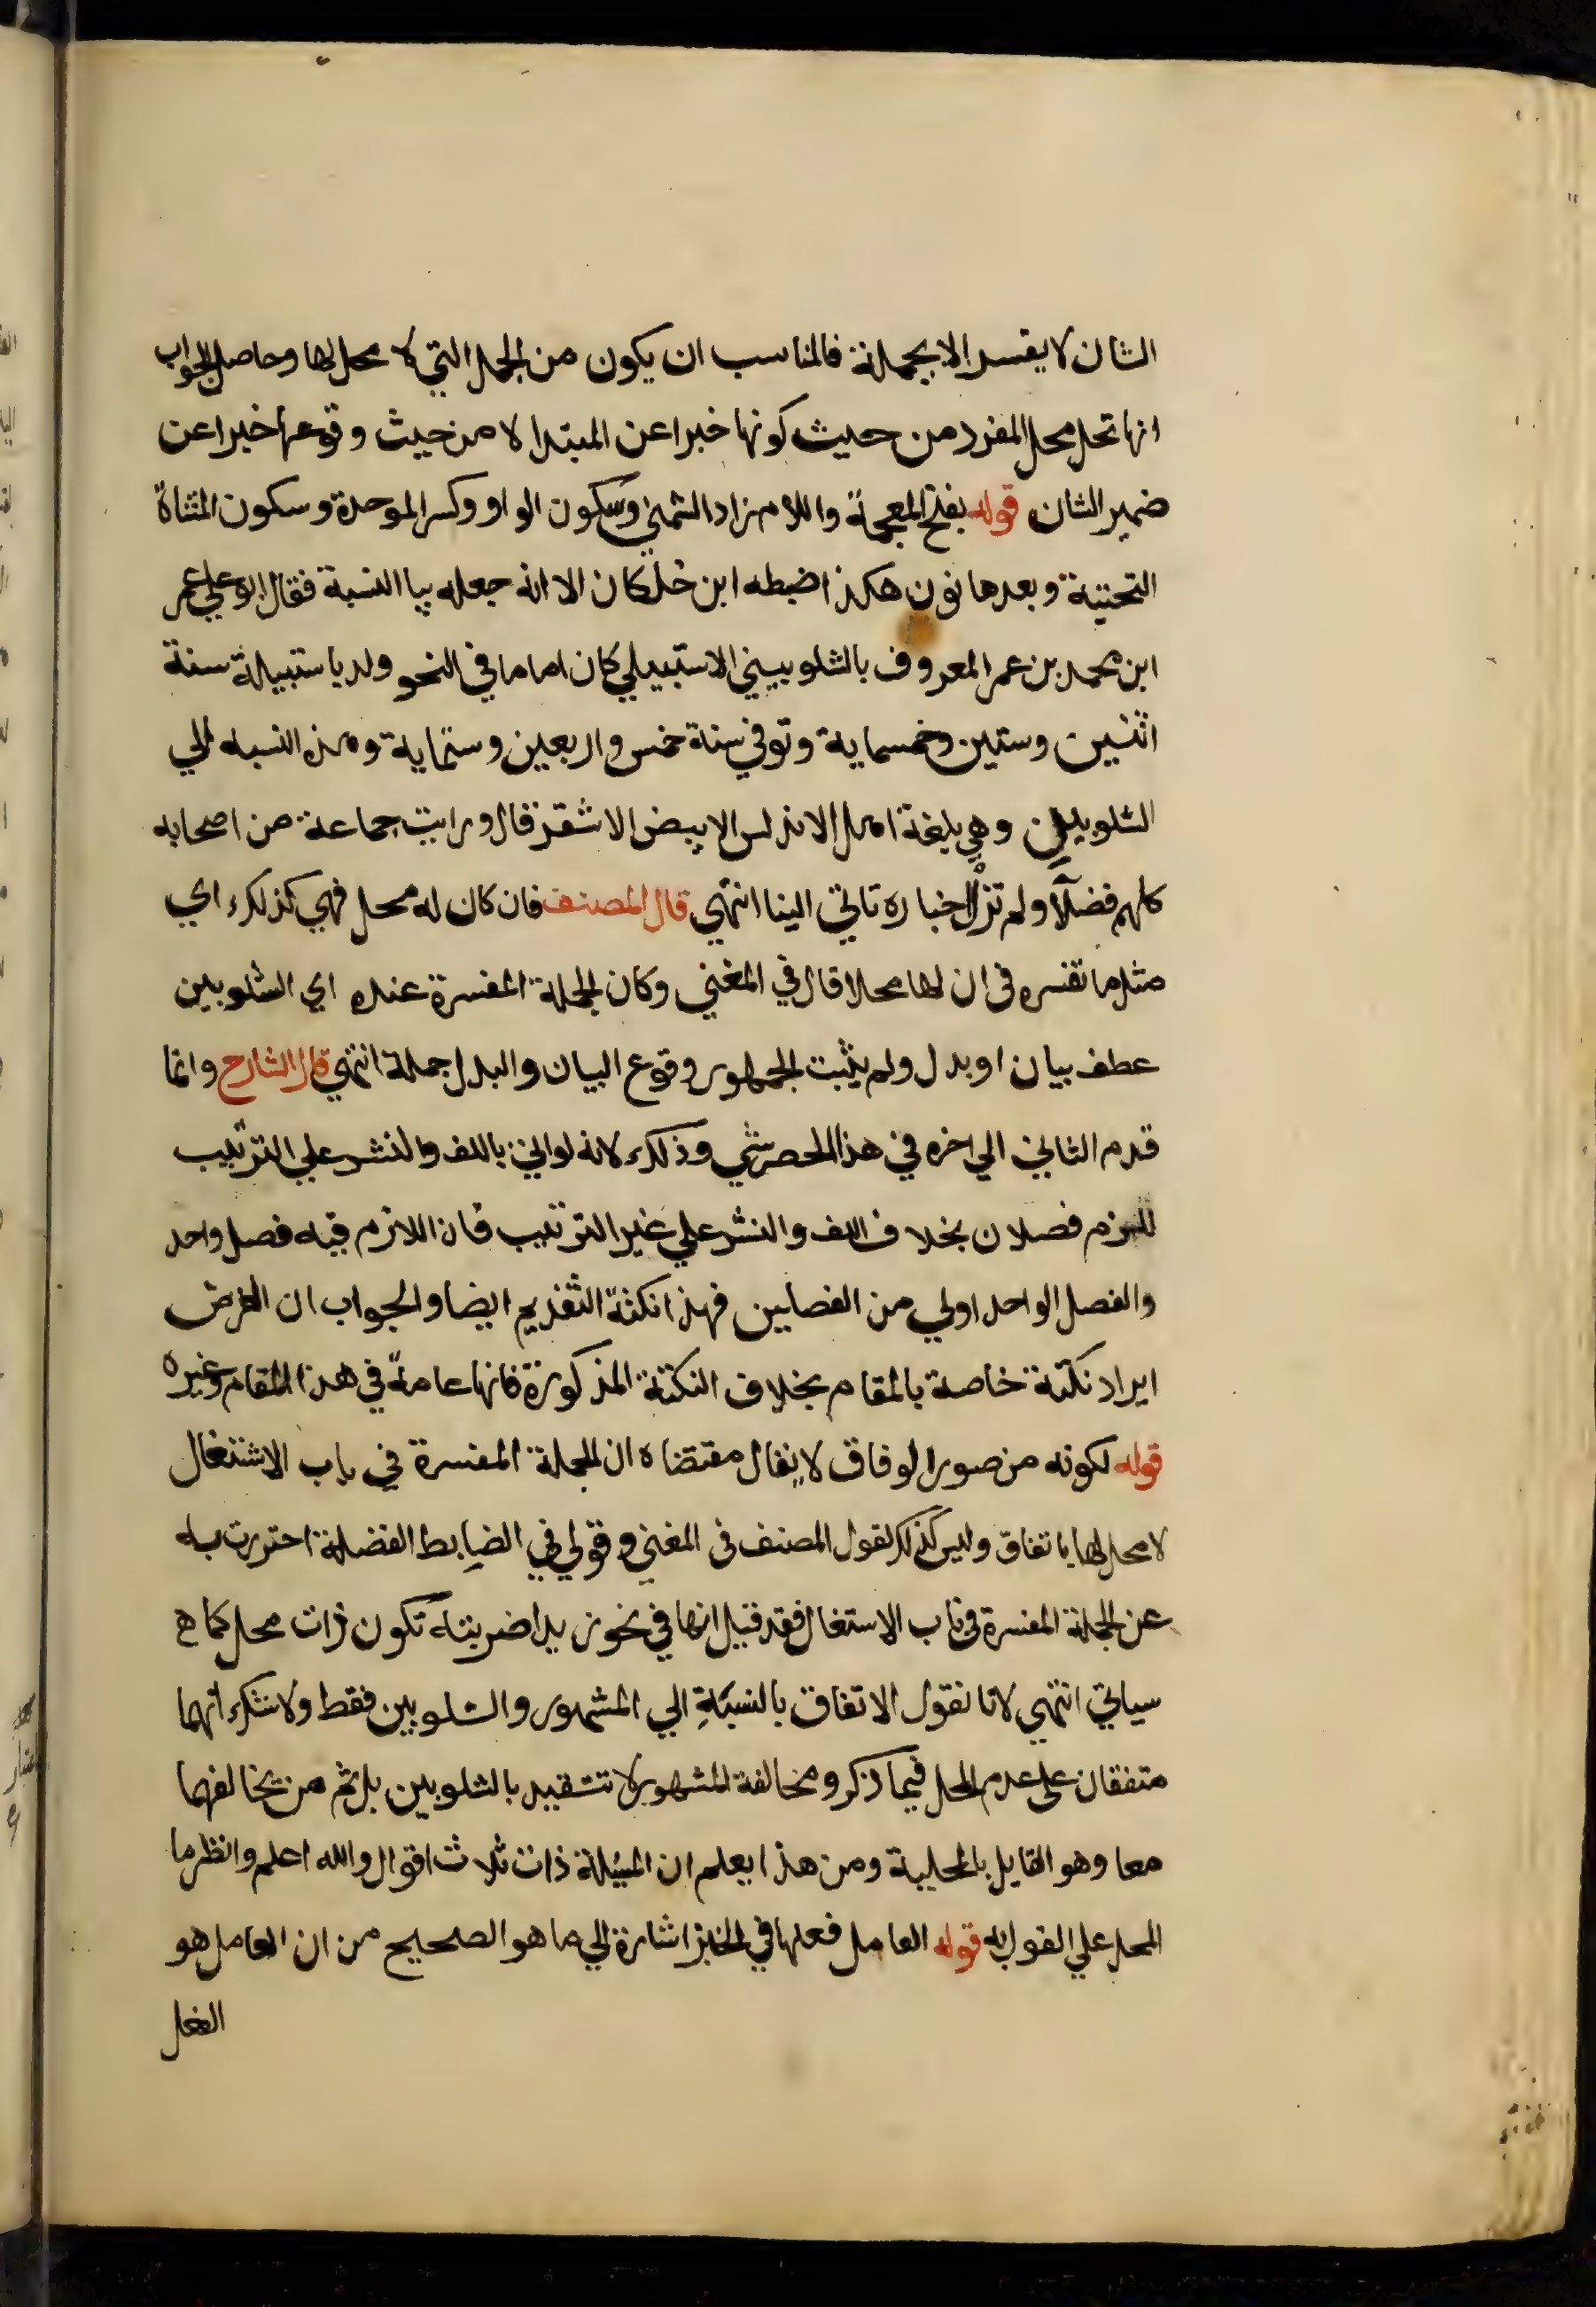 الشان لا يفسر الا بجملة فالمناسب ان يكون من الجمل التي لا محل لها وحاصل الجواب
انها تحل محل المفرد من حيث كونها خبرا عن المبتدا لا من حيث وقوعها خبرا عن
ضمير الشان قوله بفتح المعجمة واللام زاد الشمني وسكون الواو وكسر الموحدة وسكون المثناة
التحتية وبعدها نون هكذا ضبطه ابن خلكان الا انه جعله بيا النسبة فقال ابو علي عمر
ابن محمد بن عمر المعروف بالشلوبيني الاشبيلي كان اماما في النحو ولد باشبيلة سنة
اثنين وستين وخمسماية وتوفي سنة خمس واربعين وستماية وهذه النسبه الي
الشلوبين وهي بلغة اهل الاندلس الابيض الاشقر قال ورايت جماعة من اصحابه
كلهم فضلآ ولم تزل اخباره تاتي الينا انتهي قال المصنف فان كان له محل فهي كذلك اي
مثل ما تفسره في ان لها محلا قال في المغني وكان الجملة المفسرة عنده اي الشلوبين
عطف بيان او بدل ولم يثبت الجمهور وقوع البيان والبدل جملة انتهي قال الشارح وانما
قدم الثاني الي اخره في هذا الحصر شي وذلك لانه لو اتي باللف والنشر علي الترتيب
للزم فصلان بخلاف اللف والنشر علي غير الترتيب فان اللازم فيه فصل واحد
والفصل الواحد اولي من الفصلين فهذا نكتة التقديم ايضا والجواب ان الغرض
ايراد نكتة خاصة بالمقام بخلاف النكتة المذكورة فانها عامة في هذا المقام وغيره
قوله لكونه من صور الوفاق لا يقال مقتضاه ان الجملة المفسرة في باب الاشتغال
لا محل لها باتفاق وليس كذلك لقول المصنف في المغني وقولي في الضابط الفضلة احترزت به
عن الجملة المفسرة في باب الاشتغال فقد قيل انها في نحو زيدا ضربته تكون ذات محل كما هـ
سياتي انتهي لانا نقول الاتفاق بالنسبة الي المشهور والشلوبين فقط ولا شك انهما
متفقان علي عدم المحل فيما ذكر ومخالفة المشهور لا تتقيد بالشلوبين بل ثم من يخالفهما
معا وهو القايل بالمحلية ومن هذا يعلم ان المسئلة ذات ثلاث اقوال والله اعلم وانظر ما
المحل علي القول به قوله العامل فعلها في الخبز اشارة الي ما هو الصحيح من ان العامل هو
الفعل